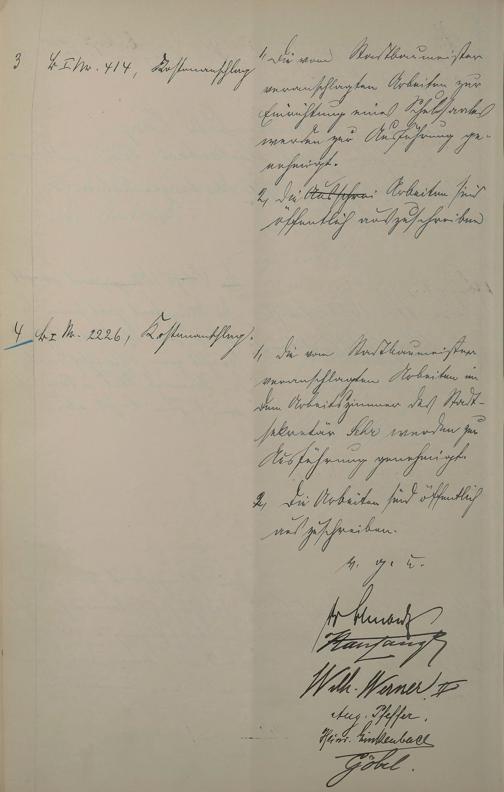 3 b I Nr. 414, Kostenanschlag
1, Die vom Stadtbaumeister
veranschlagten Arbeiten zur
Einrichtung eines Schulsaales
werden zur Ausführung ge-
nehmigt.
2, Die Arbeiten sind
öffentlich auszuschreiben
4 b I Nr. 2226, Kostenanschlag.
1, Die vom Stadtbaumeister
veranschlagten Arbeiten in
dem Arbeitszimmer des Stadt-
sekretär werden zur
Ausführung genehmigt.
2, Die Arbeiten sind öffentlich
auszuschreiben.
v. g. u.
Wilh. Werner II
Aug. Pfeffer.
Göbel.